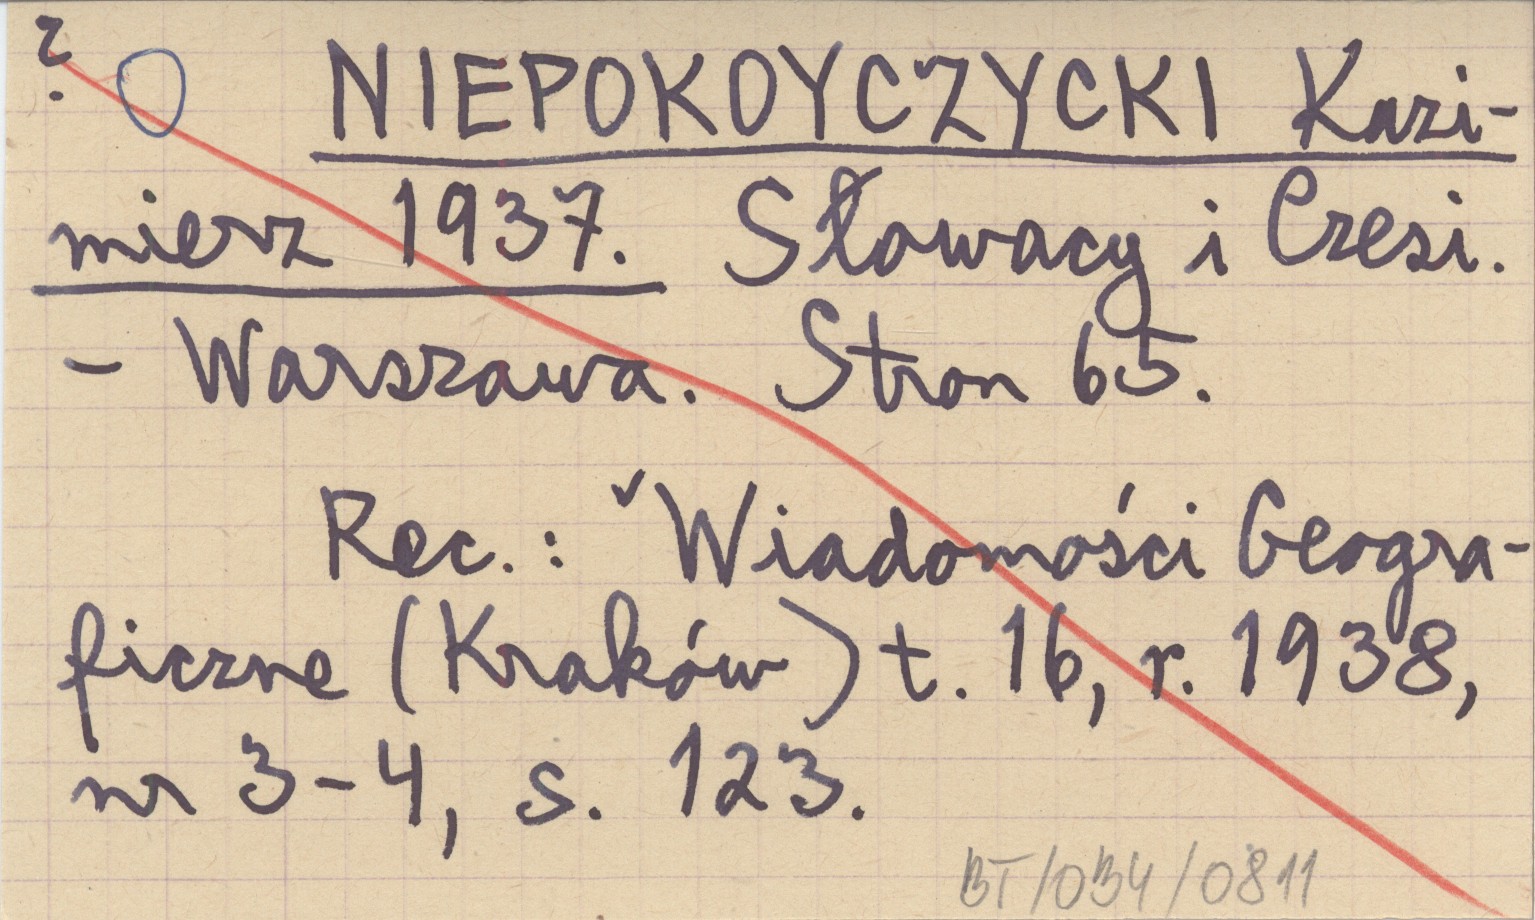 ? NIEPOKOYCZYCKI Kazi-
mierz 1937. Słowacy i Czesi.
- Warszawa. Stron 65.
Rec.: ✓Wiadomości Geogra-
ficzne (Kraków) t. 16, r. 1938,
nr 3-4, s. 123.
BT/034/0811